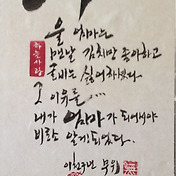 하늘사랑
울 엄마는
맨날 김치만 좋아하고
굴비는 싫어하셨다
그 이유를...
내가 엄마가 되어서야
비로소 알게되었다.